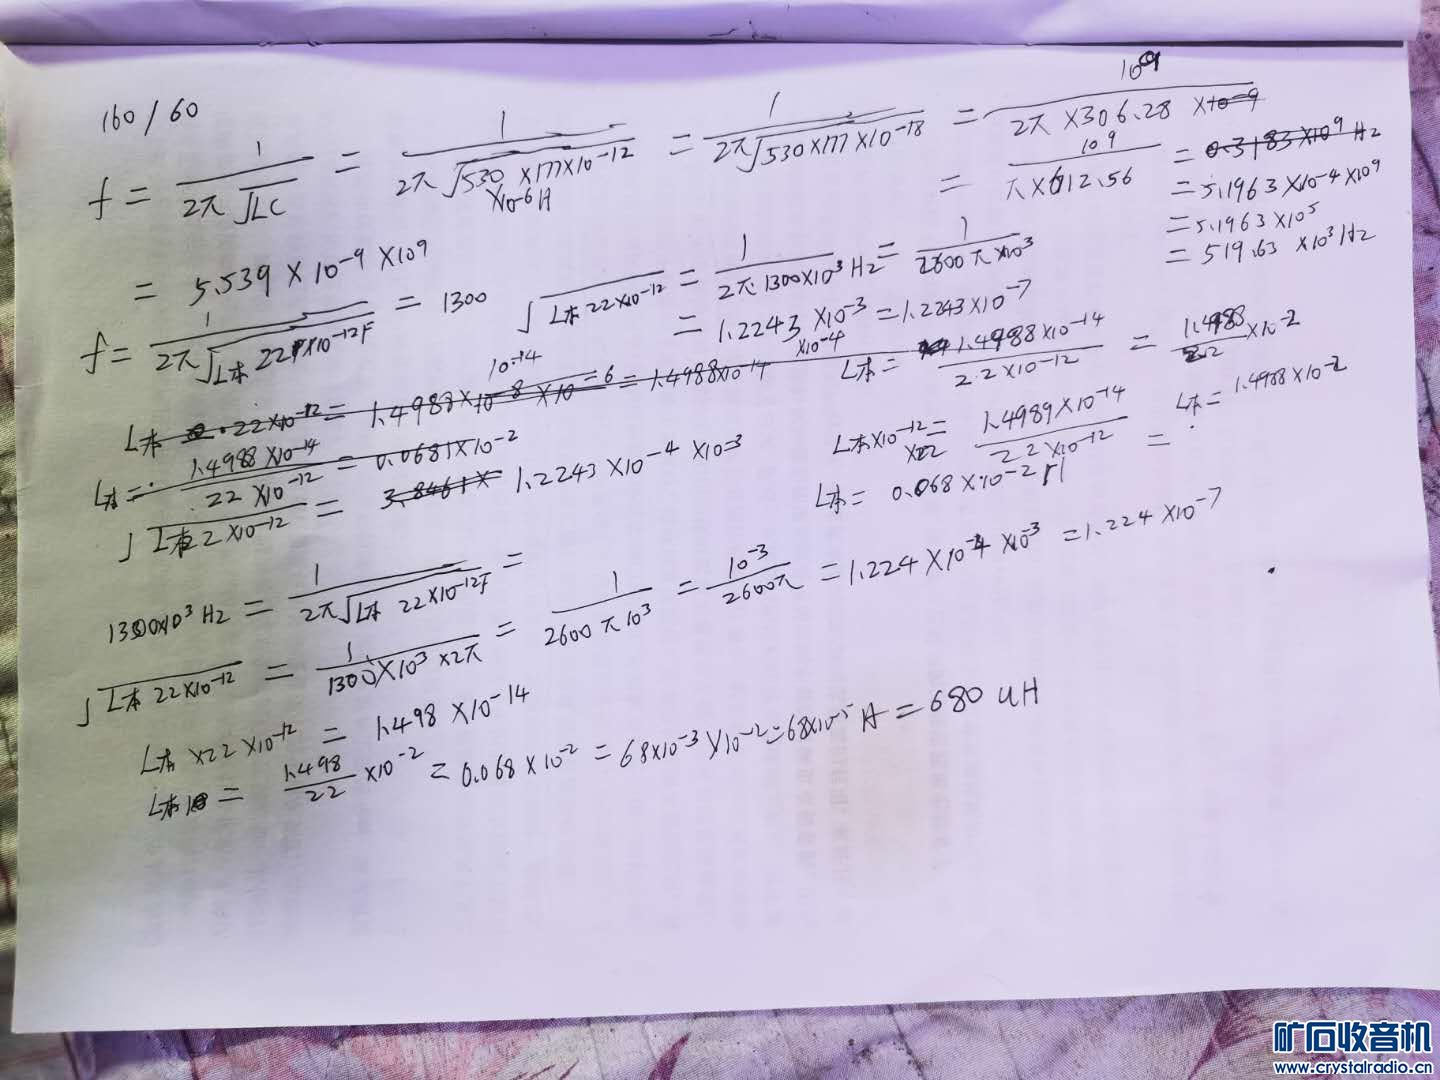 160/60
f = 1/(2π√LC) = 1/(2π√(530×177×10-12 ×10-6H)) = 1/(2π√(530×177×10-18)) = 109/(2π×306.28 ×10-9)
= 109/(π×612.56) = 0.3183×109 Hz
= 5.1963×10-4×109
= 5.1963×105
= 519.63 ×103Hz
= 5.539×10-9×109
f = 1/(2π√(L本 22×10-12F)) = 1300
√(L本 22×10-12) = 1/(2π·1300×103Hz) = 1/(2600π×103)
= 1.2243×10-3 ×10-4 = 1.2243×10-7
L本 22×10-12 = 1.4983×10-8×10-6 10-14 = 1.4988×10-14
L本 = 1.4988×10-14/(2.2×10-12) = 1.4988/2.2 ×10-2
L本 = 1.4988×10-14/(22×10-12) = 0.0681×10-2
L本×10-12 ×22 = 1.4989×10-14/(22×10-12) =
L本 = 1.4988×10-2
L本 = 0.068×10-2H
√(L本22×10-12) = 3.8461× 1.2243×10-4×10-3
1300×103Hz = 1/(2π√(L本 22×10-12F)) =
√(L本 22×10-12) = 1/(1300×103×2π) = 1/(2600π103) = 10-3/2600π = 1.224×10-4×10-3 = 1.224×10-7
L本×22×10-12 = 1.498×10-14
L本 = 1.498/22 ×10-2 = 0.068×10-2 = 68×10-3×10-2=68×10-5H = 680uH
矿石收音机
www.crystalradio.cn